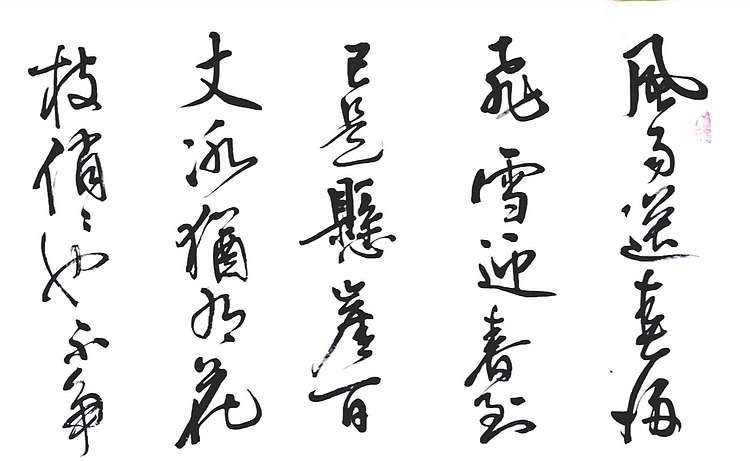 風雨送春歸
飛雪迎春到
已是懸崖百
丈冰猶有花
枝俏〻也不争